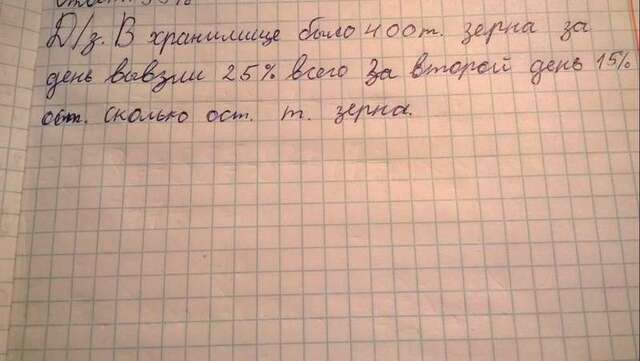 Д/з. В хранилище было 400т. зерна за
день вывзли 25% всего За второй день 15%
ост. сколько ост. т. зерна.